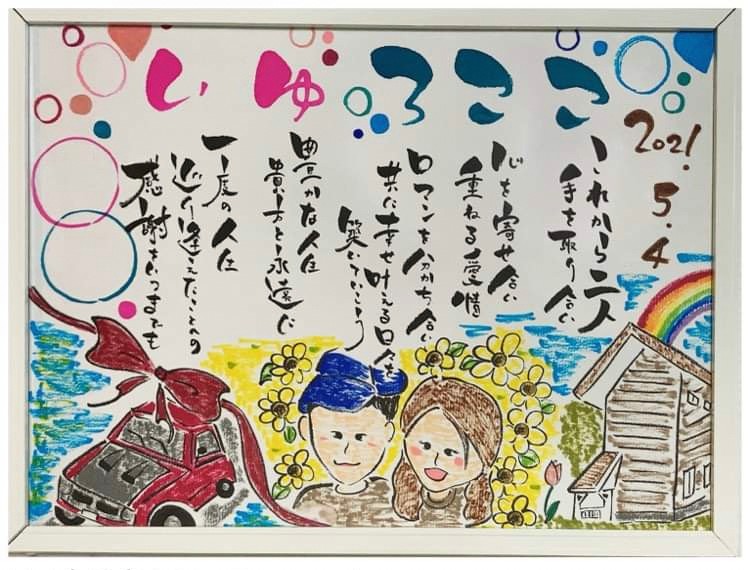 2021.5.4
こころゆい
これから二人
手を取り合い
心を寄せ合い
重ねる愛情
ロマンを分かち合い
共に幸せ叶える日々を
いていこう
豊かな人生
貴方と永遠に
一度の人生
巡り逢えたことへの
感謝をいつまでも